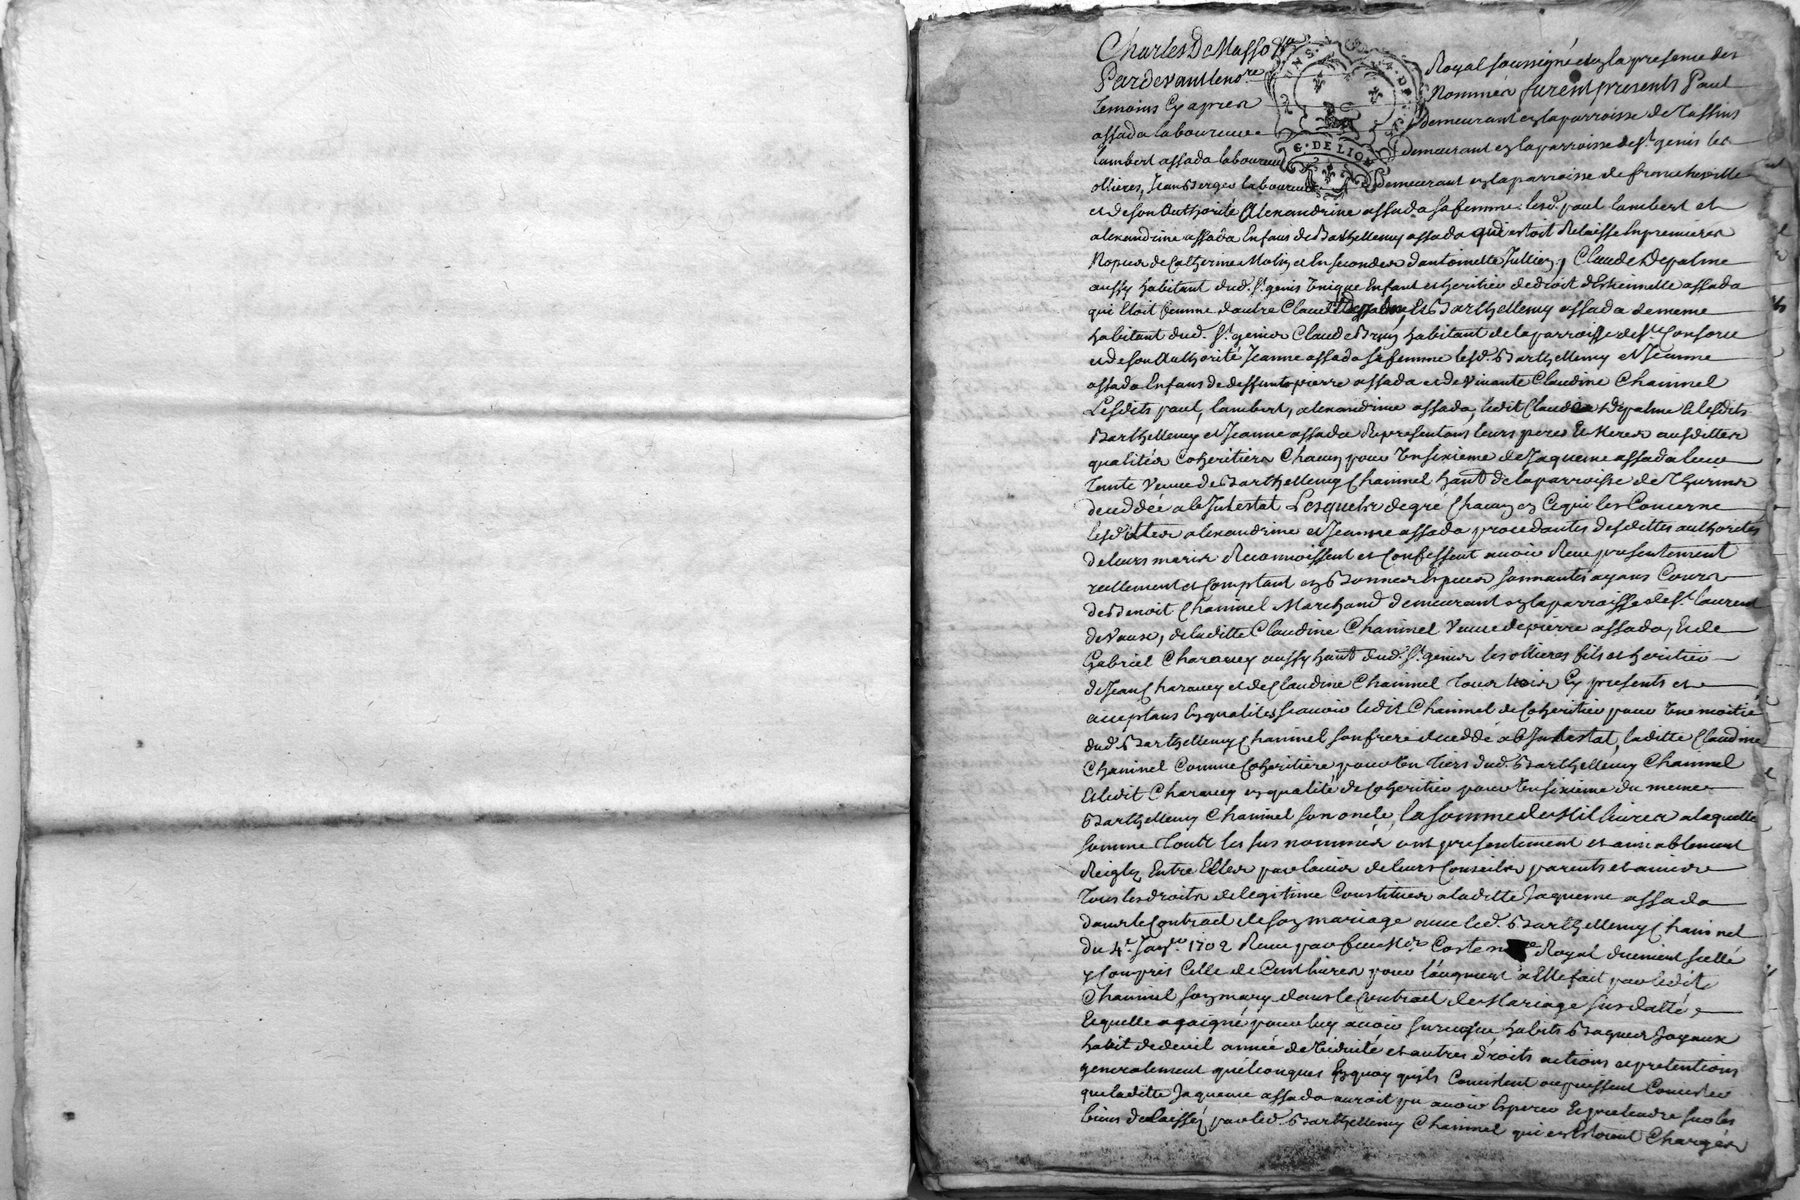 Charles De Masso
Pardevant le no.re Royal soussigné et en la presence des
temoins cy apres Nommés furent presents Paul
assada laboureur demeurant en la parroisse de Tassins
Lambert assada laboureur demeurant en la parroisse de St. genis les
ollieres, Jean Berger laboureur demeurant en la parroisse de francheville
et de son Authorité Alexandrine assada sa femme lesd. paul Lambert et
alexandrine assada Enfans de Barthellemy assada qui estoit Relaissé En premieres
Nopces de Catherine Molin et En secondes d'antoinette Jullien, Claude Depalme
aussy habitant dud. St. genis Unique Enfant et heritier de droit d'Estiennette assada
qui Etoit femme d'autre Claude Depalme, Et Barthellemy assada de meme
habitant dud. St. genis Claude Brun habitant de la parroisse de Ste. Consorce
et de son Authorité Jeanne assada sa femme lesd. Barthellemy et Jeanne
assada Enfans de deffunt pierre assada et de vivante Claudine Chaninel
Lesdits paul, lambert, alexandrine assada, ledit Claude Depalme et lesdits
Barthellemy et Jeanne assada Representans leurs peres Et Meres ausdittes
qualités Coheritiers Chacun pour Un sixieme de Jaqueme assada leur
Tante Veuve de Barthellemy Chaninel hant. de la parroisse de Thurins
deceddée ab Intestat Lesquels de gré Chacun en Ce qui les Concerne
lesdittes alexandrine et Jeanne assada procedantes desdittes authorités
de leurs maris Reconnoissent et Confessent avoir Receu presentement
reellement et Comptant en Bonnes Especes sonnantes ayans Cours
de Benoit Chaninel Marchand demeurant en la parroisse de St. laurent
de Vaux, de laditte Claudine Chaninel Veuve de pierre assada, Et de
Gabriel Charavey aussy hant. dud. St. genis les ollieres fils et heritier
de Jean Charavey et de Claudine Chaninel Tous trois Cy presents et
acceptans En qualités scavoir ledit Chaninel de Coheritier pour Une moitié
dud. Barthellemy Chaninel son frere deceddé ab Intestat, laditte Claudine
Chaninel Comme Coheritiere pour Un Tiers dud. Barthellemy Chaninel
Et ledit Charavey en qualité de Coheritier pour Un sixieme du meme
Barthellemy Chaninel son oncle, la somme de Mil livres a laquelle
somme Touts les sus nommés ont presentement et amiablement
Reiglé Entre Elles par l'avis de leurs Conseils parents et amis
Tous les droits de legitime Constitués a laditte Jaqueme assada
dans le Contract de son mariage avec led. Barthellemy Chaninel
du 4e. Janv.er 1702 Receu par feu Me Coste no.re Royal duement scellé
y Compris Celle de Cent livres pour l'augment a Elle fait par ledit
Chaninel son mary dans le Contract de Mariage susdatté
lequelle a gaigné pour luy avoir survescu habits Bagues Joyaux
habit de deuil année de viduité et autres droits actions et pretentions
generalement quelconques En quoy qu'ils Consistent ou pussent Consister
que laditte Jaqueme assada auroit pu avoir Esperer Et pretendre sur les
biens delaissés par led. Barthellemy Chaninel qui en Estoient Chargés
G. DE LION